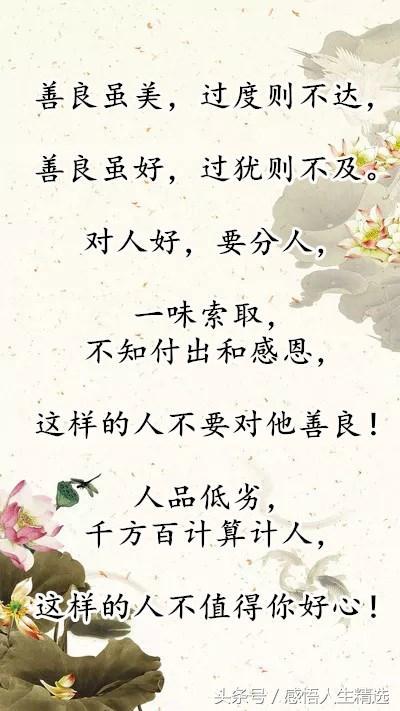 善良虽美，过度则不达，
善良虽好，过犹则不及。
对人好，要分人，
一味索取，
不知付出和感恩，
这样的人不要对他善良！
人品低劣，
千方百计算计人，
这样的人不值得你好心！
头条号/感悟人生精选